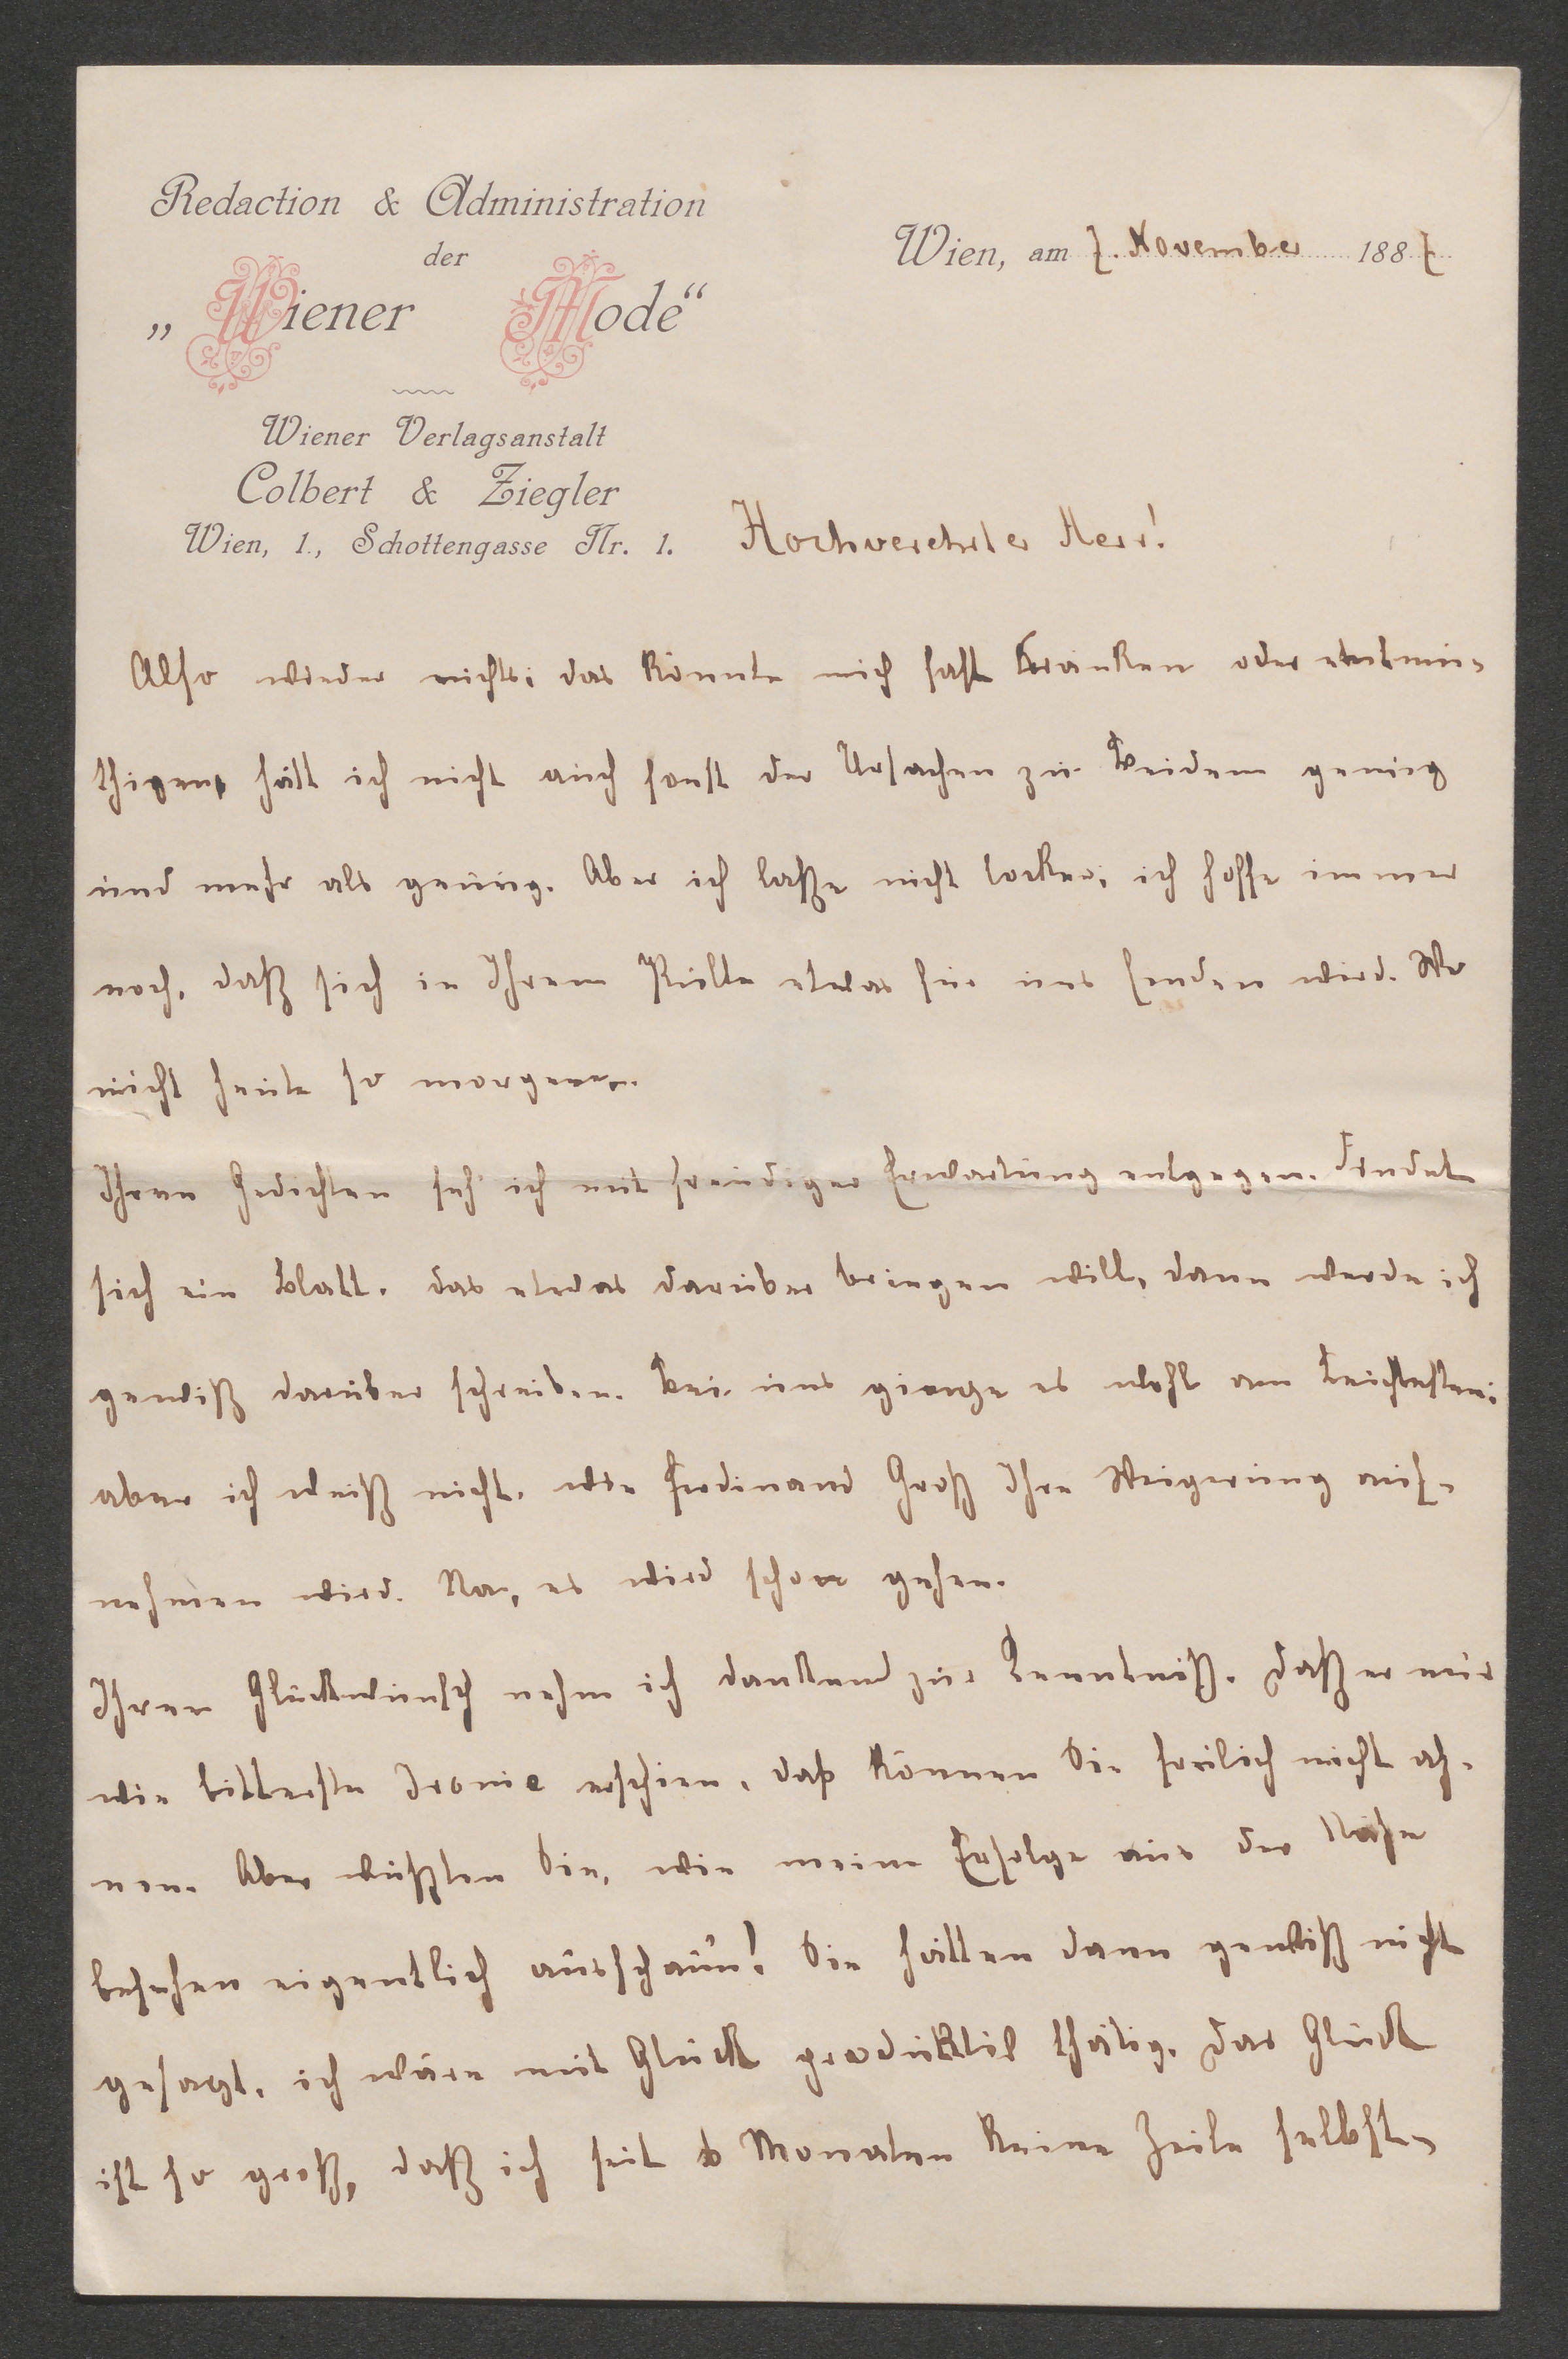 Redaction & Administration
der
„Wiener Mode“
Wiener Verlagsanstalt
Colbert & Ziegler
Wien, 1., Schottengasse Nr. 1.
Wien, am 7. November 1887
Hochverehrter Herr!
Also wieder nichts; das könnte mich fast kränken oder entmu-
thigen, hätt ich nicht auch sonst der Ursachen zu Beidem genug
und mehr als genug. Aber ich laße nicht locker; ich hoffe immer
noch, daß sich in Ihrem Pulte etwas für uns finden wird. Wo
nicht heute so morgen.
Ihren Gedichten seh' ich mit freudiger Erwartung entgegen. Findet
sich ein Blatt, das etwas darüber bringen will, dann werde ich
gewiß darüber schreiben. Bei uns gienge es wohl am Leichtesten;
aber ich weiß nicht, wie Ferdinand Groß Ihre Weigerung auf-
nehmen wird. Na, es wird schon gehen.
Ihren Glückwunsch nehm ich dankend zur Kenntniß. Daß er mir
wie bitterste Ironie erschien, daß können Sie freilich nicht ah-
nen. Aber wüßten Sie, wie meine Erfolge aus der Nähe
besehen eigentlich ausschaun! Sie hätten dann gewiß nicht
gesagt, ich wäre mit Glück produktiv thätig. Das Glück
ist so groß, daß ich seit 6 Monaten keine Zeile selbst-